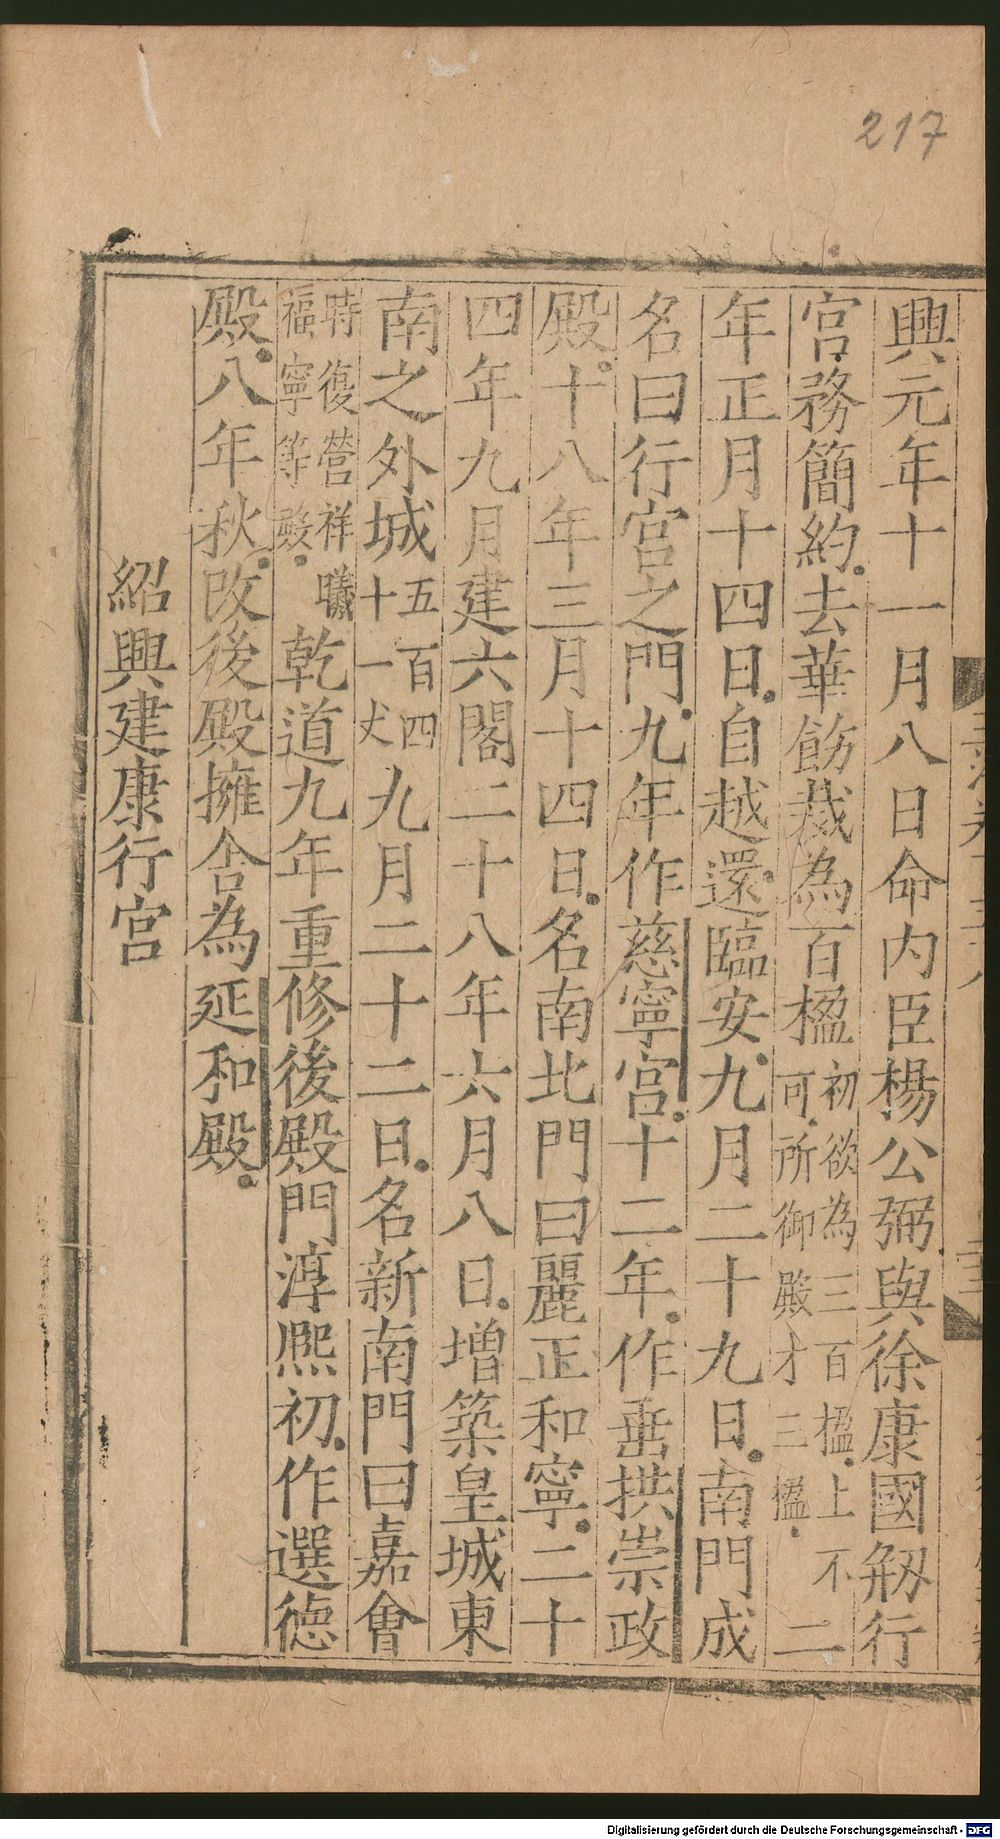 217
興元年十一月八日命內臣楊公弼與徐康國剏行
宮務簡約去華飭裁為百楹初欲為三百楹上不可所御殿才三楹二
年正月十四日自越還臨安九月二十九日南門成
名曰行宮之門九年作慈寧宮十二年作垂拱崇政
殿十八年三月十四日名南北門曰麗正和寧二十
四年九月建六閣二十八年六月八日增築皇城東
南之外城五百四十一丈九月二十二日名新南門曰嘉會
時復營祥曦福寧等殿乾道九年重修後殿門淳熙初作選德
殿八年秋改後殿擁舍為延和殿
紹興建康行宮
Digitalisierung gefördert durch die Deutsche Forschungsgemeinschaft - DFG